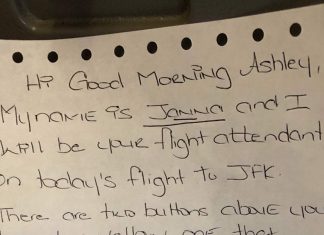 Hi Good Morning Ashley,
My name is Janna and I
will be your flight attendant
on today's flight to JFK.
There are two buttons above you
one that